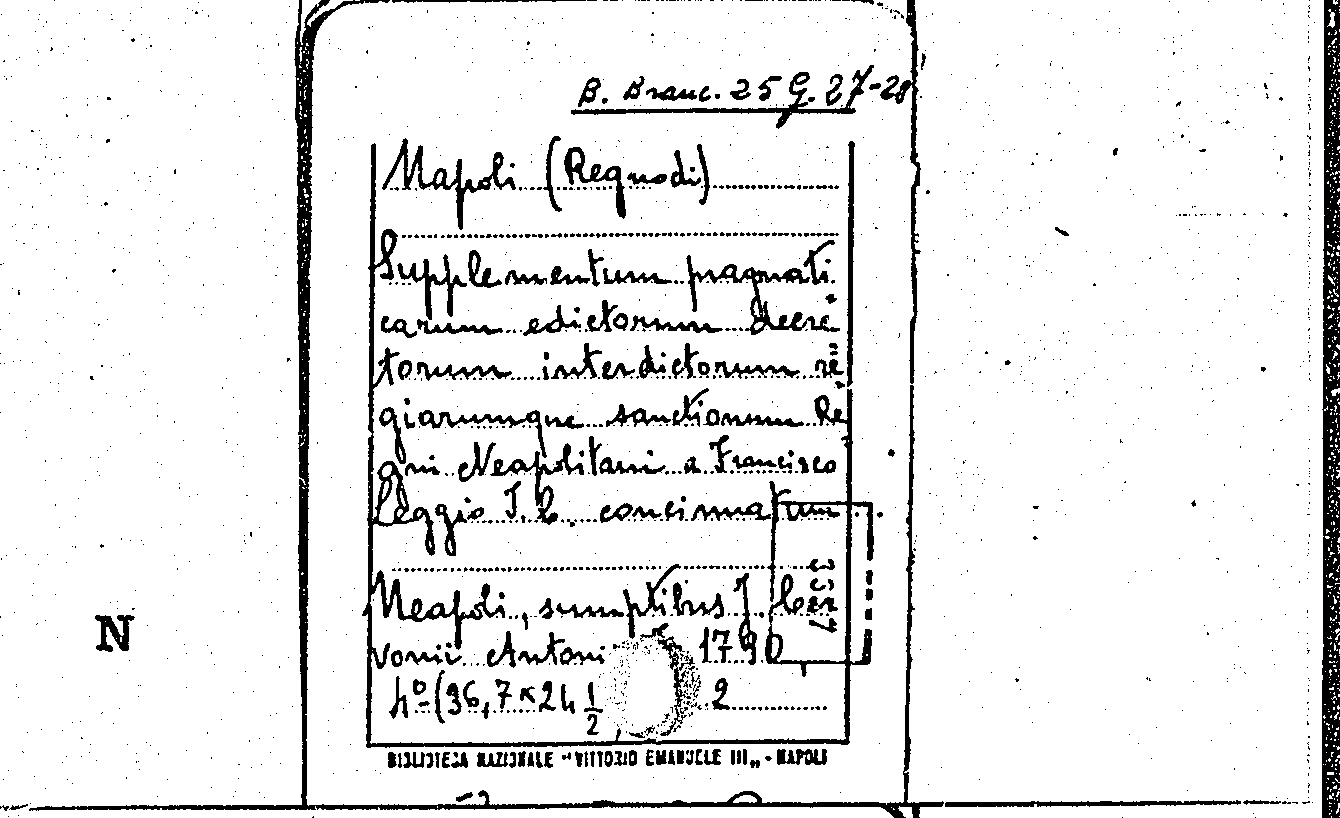 B. Branc. 25 G. 27-28
Napoli (Regno di)
Supplementum pragmati
carum edictorum decre
torum interdictorum re
giarumque sanctionum Re
gni Neapolitani a Francisco
Leggio J. C. concinnatum
Neapoli, sumptibus J.
vonii Antoni 1790
4º (36,7 x 24 1/2 2
BIBLIOTECA NAZIONALE "VITTORIO EMANUELE III" - NAPOLI
N